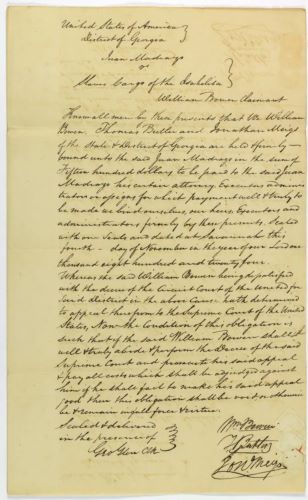 United States of America
District of Georgia
Juan Madrazo
vs
Slaves Cargo of the Isabelita
William Bowen Claimant
Know all men by these presents that We William
Bowen, Thomas Butler and Jonathan Meigs
of the State & District of Georgia are held firmly
bound unto the said Juan Madrazo in the sum of
Fifteen hundred dollars to be paid to the said Juan
Madrazo his certain attorney Executors adminis
trators or assigns for which payment well & truly to
be made we bind ourselves, our heirs Executors and
administrators firmly by these presents, Sealed
with our Seals and dated at Savannah this
fourth day of November in the year of our Lord one
thousand eight hundred and twenty four.
Whereas the said William Bowen being dissatisfied
with the decree of the Circuit Court of the United for
said District in the above Cause hath determined
to appeal therefrom to the Supreme Court of the United
States, Now the Condition of this obligation is
such that if the said William Bowen shall
well & truly abide & perform the Decree of the said
Supreme Court and prosecute his said appeal
& pay all costs which shall be adjudged against
him if he shall fail to make his said appeal
good then this obligation shall be void or otherwise
be & remain in full force & virtue.
Sealed & delivered
in the presence of
Geo Glen Clk
Wm Bowen
T Butler
Jon Meigs